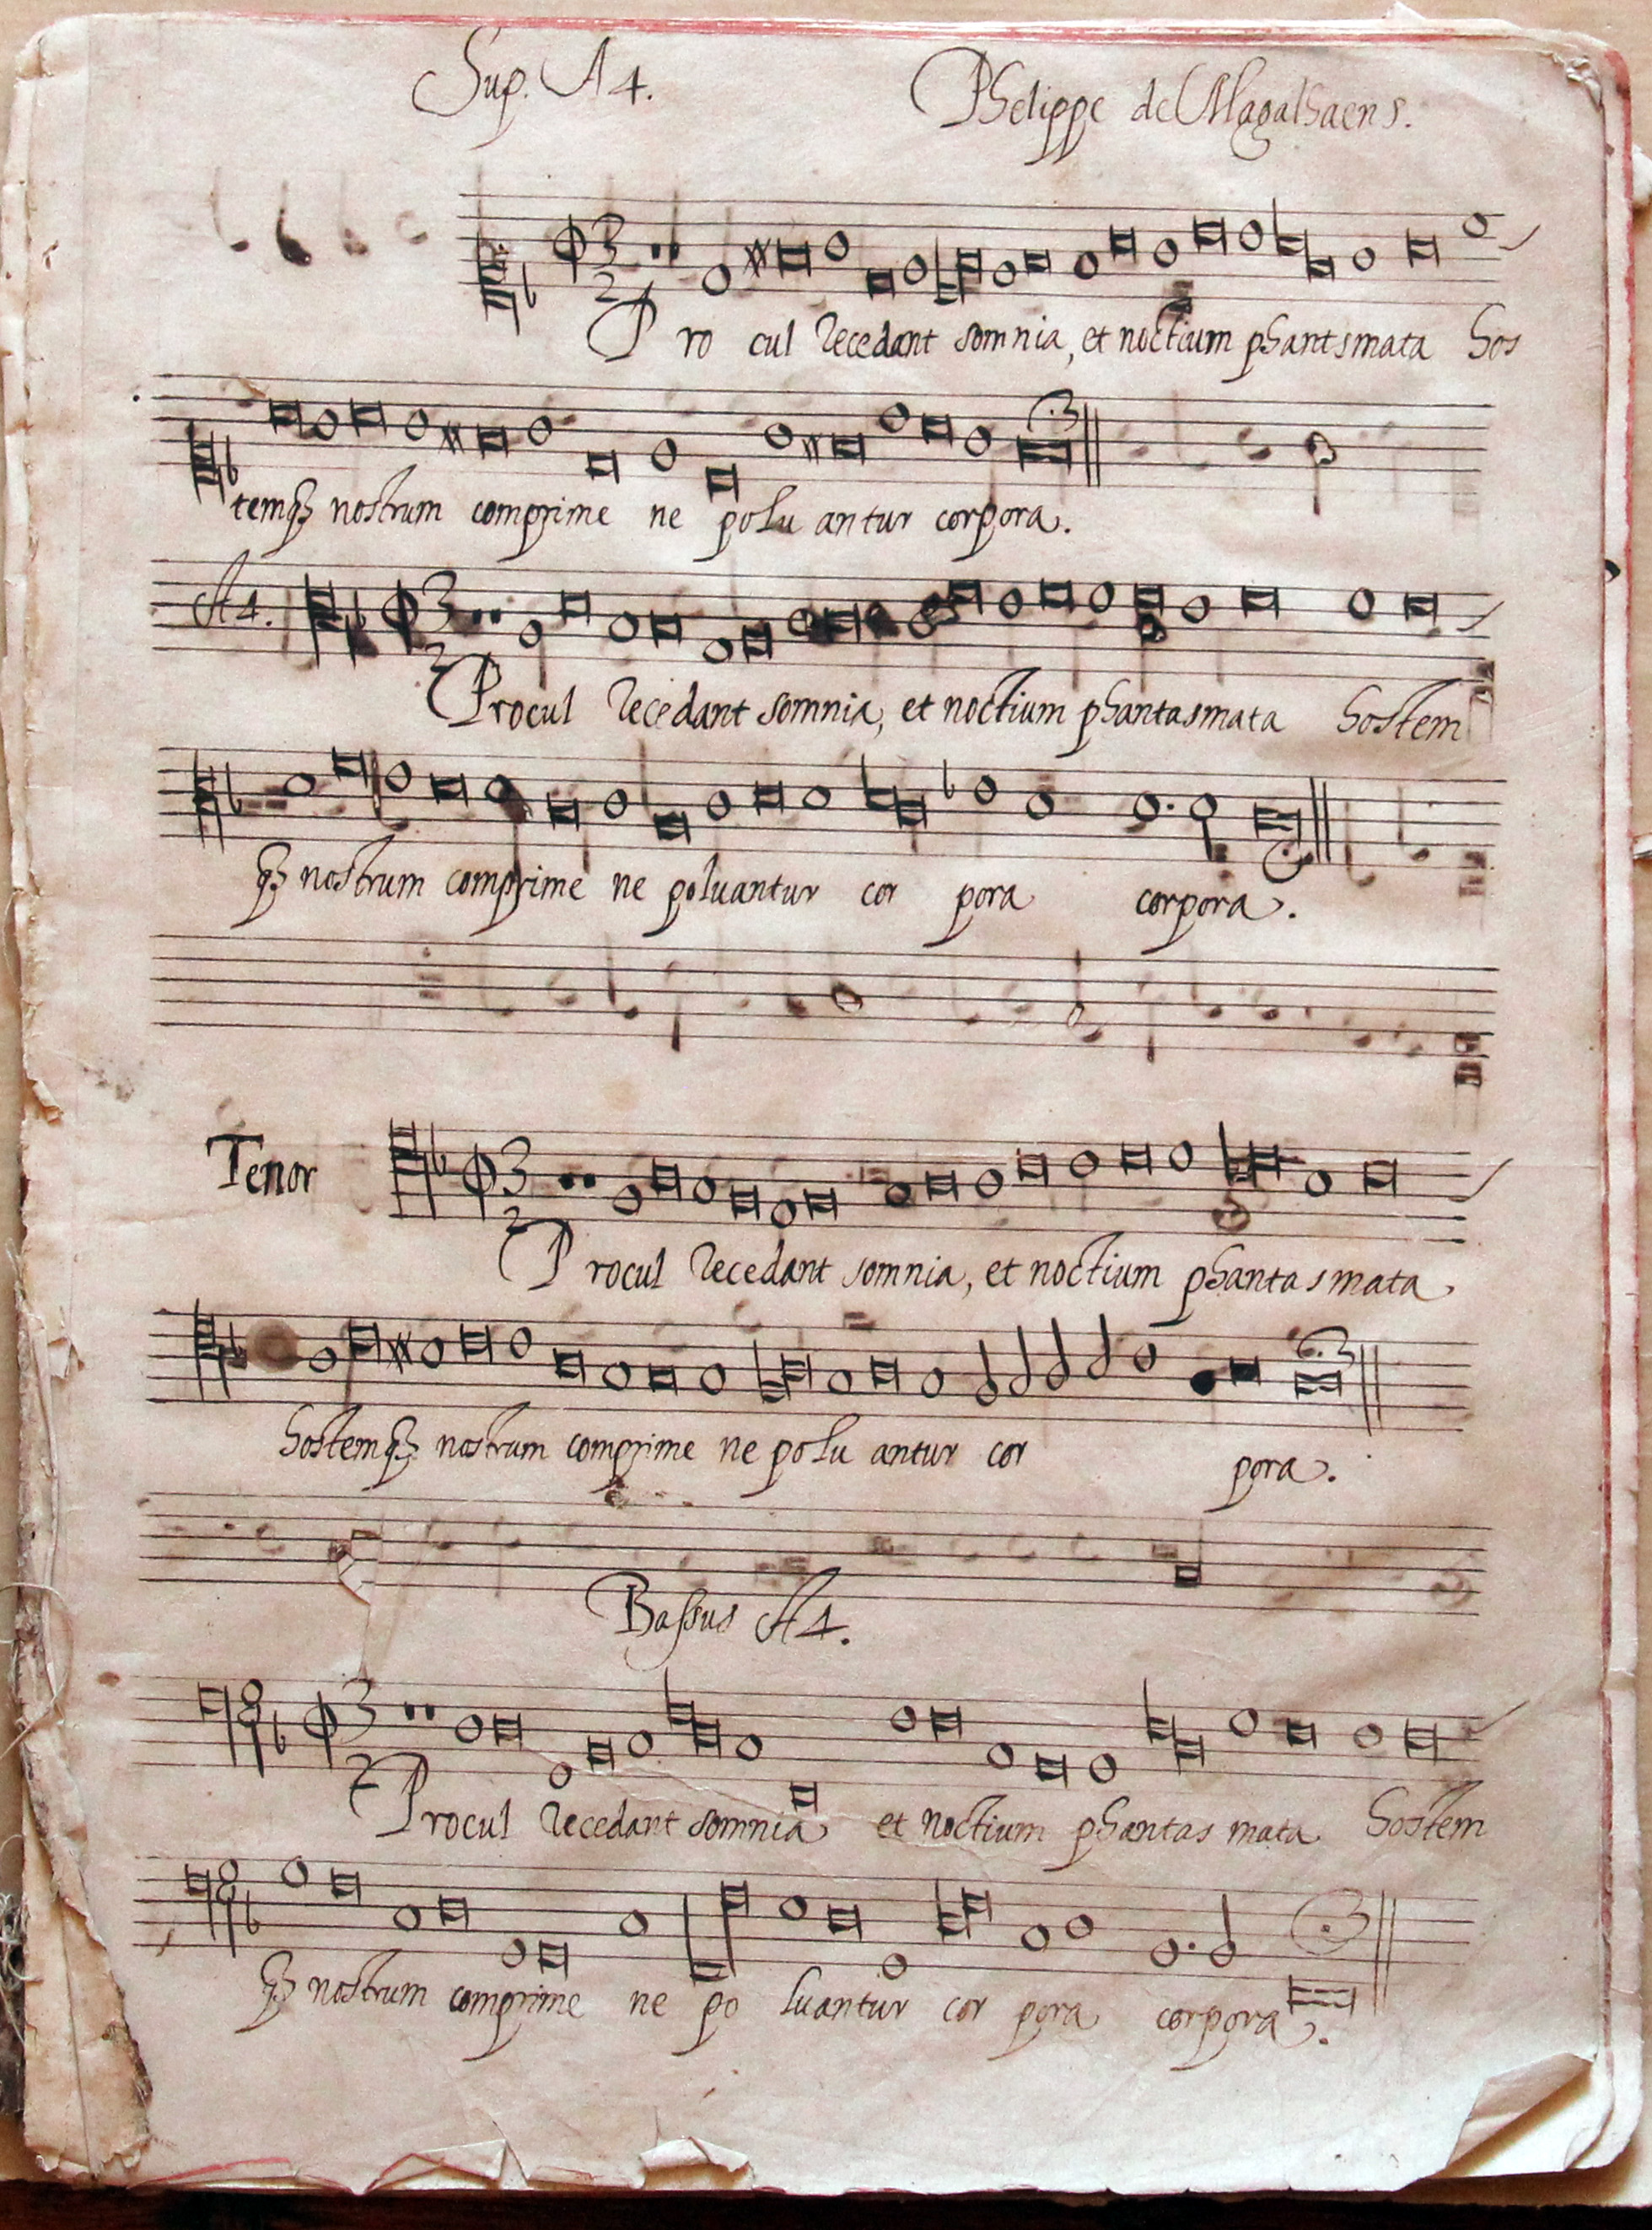 Sup. A 4. Phelippe de Magalhaens.
3
2
Pro cul recedant somnia, et noctium phantsmata hos
temq3 nostrum comprime ne polu antur corpora.
A 4. 3
2
Procul recedant somnia, et noctium phantasmata hostem
q3 nostrum comprime ne poluantur cor pora corpora.
Tenor 3
2
Procul recedant somnia, et noctium phantasmata.
hostemq3 nostrum comprime ne polu antur cor pora.
Bassus A 4.
3
2
Procul recedant somnia et noctium phantas mata hostem
q3 nostrum comprime ne po luantur cor pora corpora.